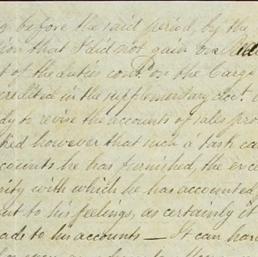 before the said period, by the
ion that I did not gain
t of the duties on the Cargo
credited in the supplementary doct.
dy to revise the accounts of sales pro
ked however that such a task ca
ccounts he has furnished, the exce
rity with which he has accounted
nt to his feelings, as certainly it
ads to his accounts — It can hard